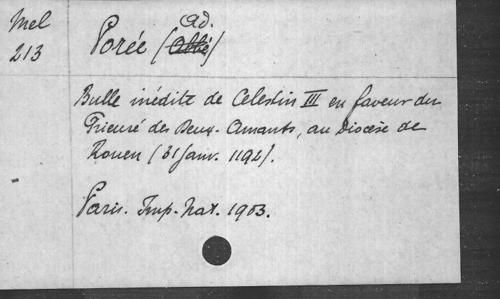 Mel
213
Porée (Abbé) Ad.
Bulle inédite de Celestin III en faveur du
Prieuré des Deux-Amants, au Diocèse de
Rouen (31 Janv. 1192).
Paris. Imp. Nat. 1903.